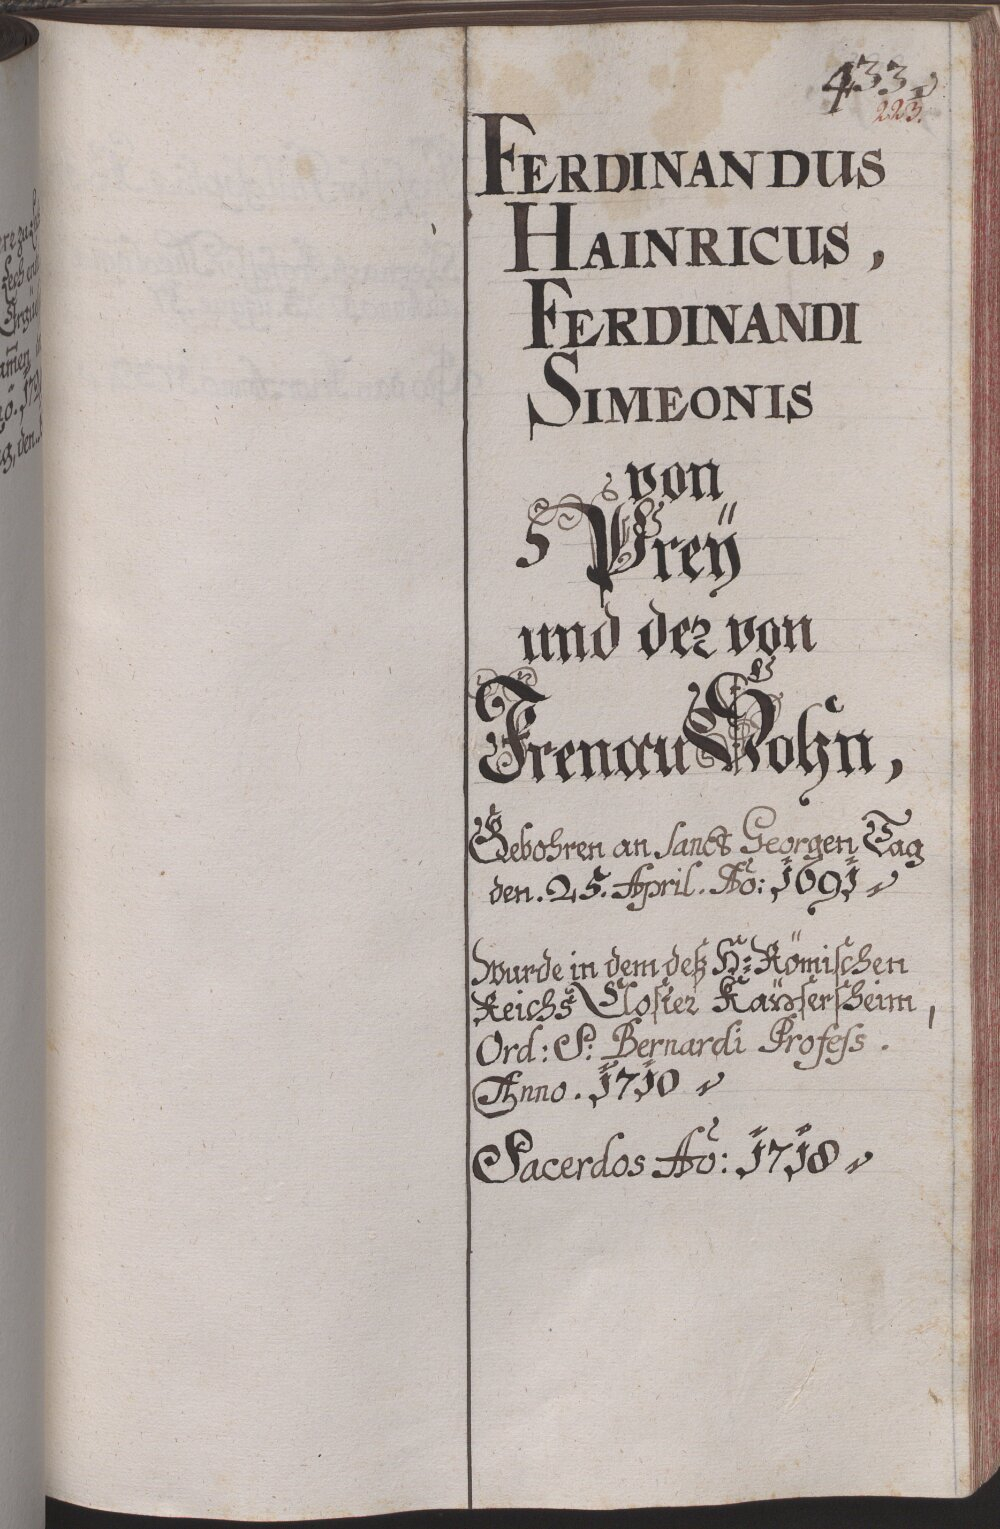 433
223.
FERDINANDUS
HAINRICUS,
FERDINANDI
SIMEONIS
von
Preÿ
und der von
Frenau Sohn,
Gebohren an Sanct Georgen Tag
den. 25. April. Ao: 1691
Wurde in dem deß H: Römischen
Reichs Closter Kaÿsersheim,
Ord: S: Bernardi Profess.
Anno. 1710
Sacerdos Ao: 1718